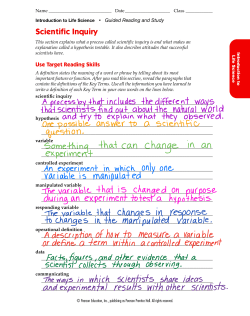 Name Date Class
Introduction to Life Science • Guided Reading and Study
Scientific Inquiry
This section explains what a process called scientific inquiry is and what makes an
explanation called a hypothesis testable. It also describes attitudes that successful
scientists have.
Use Target Reading Skills
A definition states the meaning of a word or phrase by telling about its most
important feature or function. After you read this section, reread the paragraphs that
contain the definitions of the Key Terms. Use all the information you have learned to
write a definition of each Key Term in your own words on the lines below.
scientific inquiry
A process by that includes the different ways
that scientists find out about the natural world
hypothesis and try to explain what they observed.
One possible answer to a scientific
question.
variable
Something that can change in an
experiment
controlled experiment
An experiment in which only one
variable is manipulated
manipulated variable
The variable that is changed on purpose
during an experiment to test a hypothesis.
responding variable
The variable that changes in response
to changes in the manipulated variable.
operational definition
A description of how to measure a variable
or define a term within a controlled experiment
data
Facts, figures, and other evidence that a
scientist collects through observing.
communicating
The ways in which scientists share ideas
and experimental results with other scientists.
Introduction to
Life Science